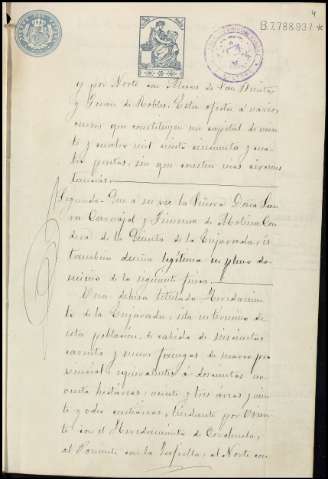 4
B.7.788.937 *
y por Norte con Alvaro de San Benito
y Gervin de Robles. Está afecta á varios
censos que constituyen un capital de cuaren
ta y cuatro mil ciento cincuenta y cua
tro pesetas, sin que consten más circuns
tancias.
Segunda = Que á su vez la Señora Doña Lau
ra Carvajal y Jimenez de Molina Con
desa de la Quinta de la Enjarada, es
también dueña legítima en pleno do
minio de la siguiente finca.
Una dehesa titulada Heredamien
to de la Enjarada, sita en término de
esta población, de cabida de trescientas
cuarenta y nueve fanegas de marco pro
vincial, equivalentes á doscientas no
venta hectáreas, veinte y tres áreas y vein
te y ocho centiáreas, lindante por Orien
te, con el Heredamiento de Corchuela,
al Poniente con la Zafrilla, al Norte con